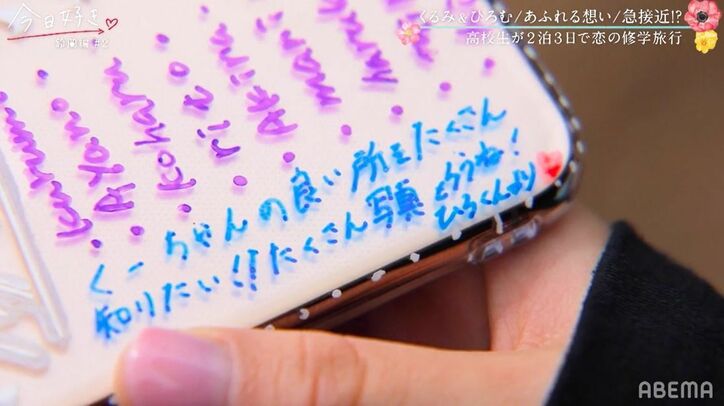 今日好き
くるみ&ひろむ/あふれる想い/急接近!?
高校生が2泊3日で恋の修学旅行
Kurumi
Ayon
Kokoha
rito
くーちゃんの良い所をたくさん
知りたい!!たくさん写真とろうね!
ひろくんより
ABEMA